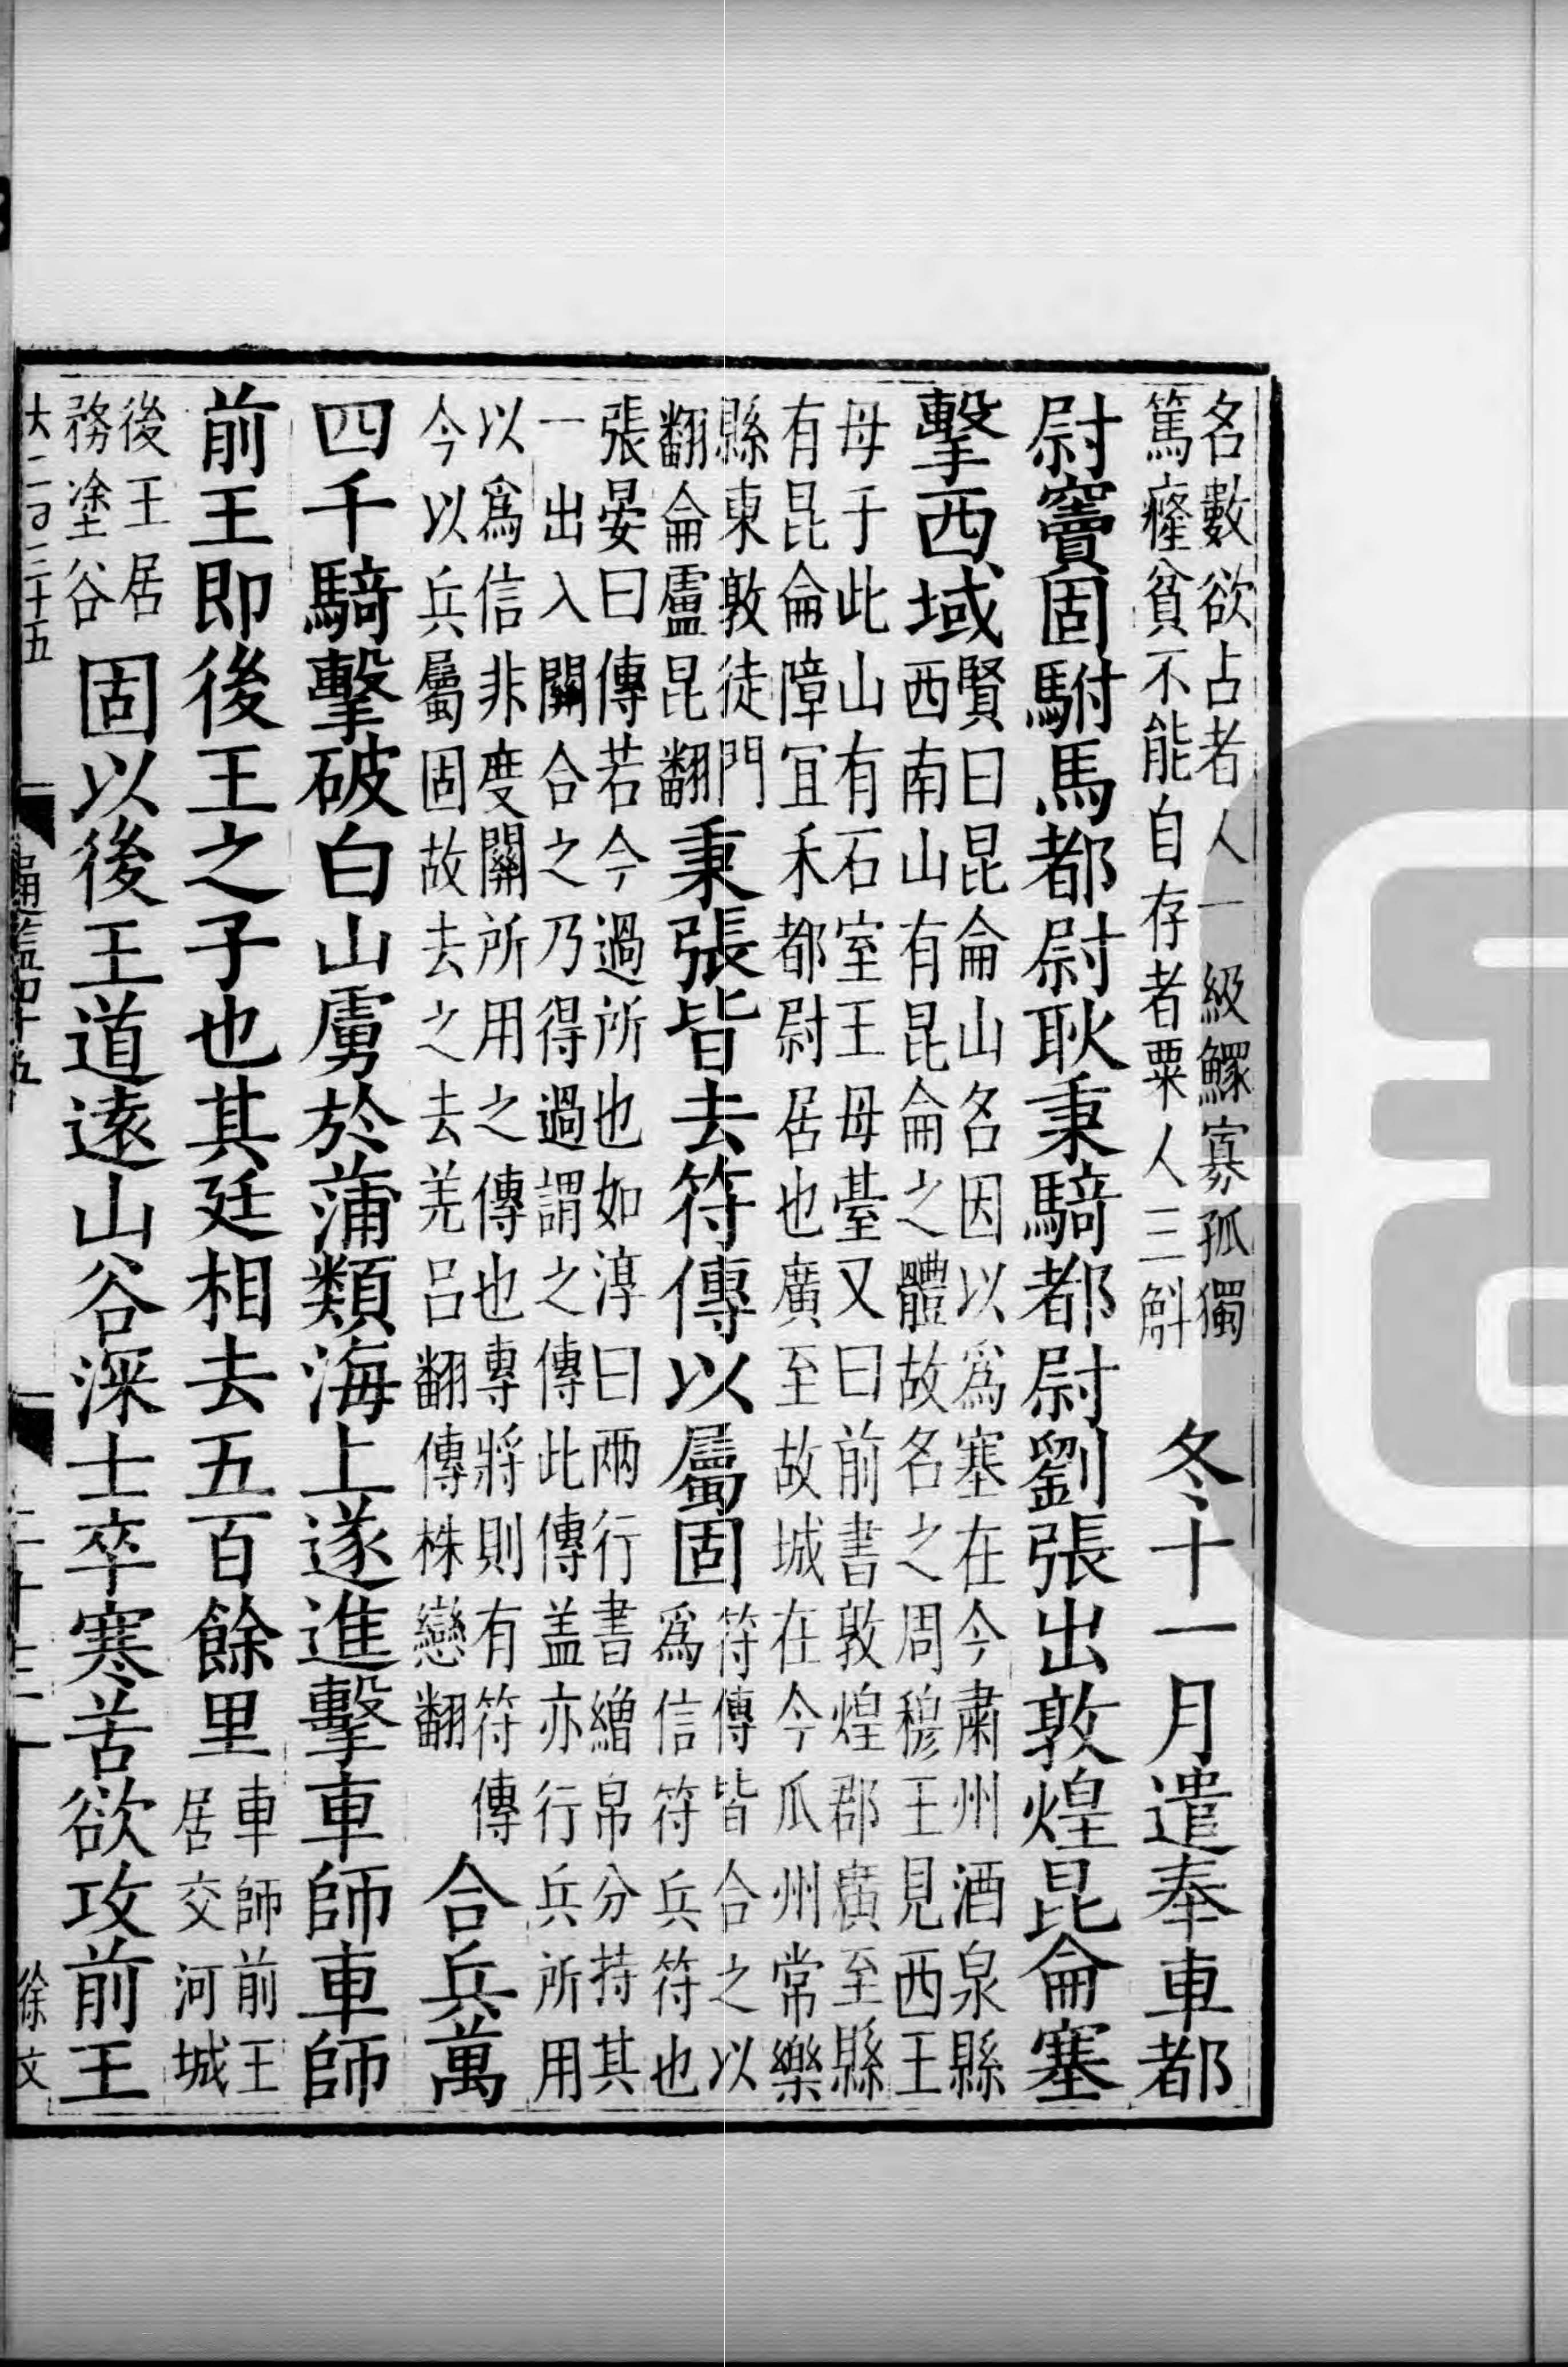 名數欲占者人一級鰥寡孤獨篤癃貧不能自存者粟人三斛冬十一月遣奉車都
尉竇固駙馬都尉耿秉騎都尉劉張出敦煌昆侖塞
擊西域賢曰昆侖山名因以爲塞在今肅州酒泉縣西南山有昆侖之體故名之周穆王見西王
母于此山有石室王母臺又曰前書敦煌郡廣至縣有昆侖障宜禾都尉居也廣至故城在今瓜州常樂
縣東敦徒門翻侖盧昆翻秉張皆去符傳以屬固符傳皆合之以爲信符兵符也
張晏曰傳若今過所也如淳曰兩行書繒帛分持其一出入關合之乃得過謂之傳此傳盖亦行兵所用
以爲信非度關所用之傳也專將則有符傳今以兵屬固故去之去羌呂翻傳株戀翻合兵萬
四千騎擊破白山虜於蒲類海上遂進擊車師車師
前王即後王之子也其廷相去五百餘里車師前王居交河城
後王居務塗谷固以後王道遠山谷深士卒寒苦欲攻前王
大二百三十五
通鑑四十五
徐文